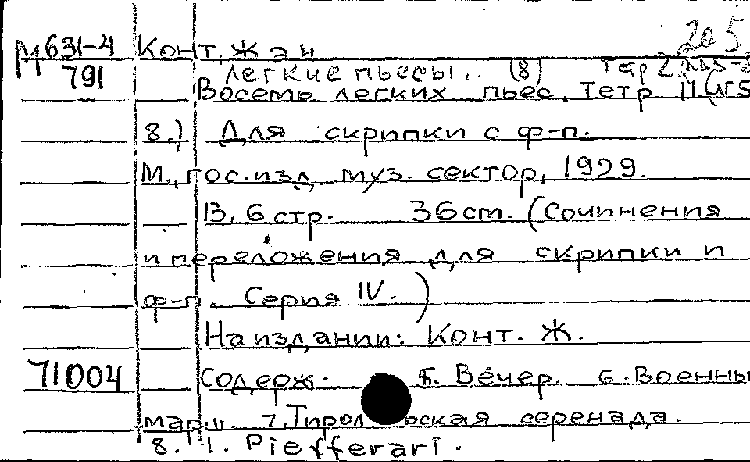 205
М631-4 Конт, Жан
791 Легкие пьесы.. (8)
Восемь легких пьес. Тетр II (№5
8.) Для скрипки с ф-п.
М., гос. изд. муз. сектор, 1929.
13, 6 стр. 36 cm. (Сочинения
и переложения для скрипки и
ф-п. Серия IV.)
На издании: Конт. Ж.
71004 Содерж. 5. Вечер. 6. Военны
марш 7. Тирольская серенада.
8. I. Piefferari.